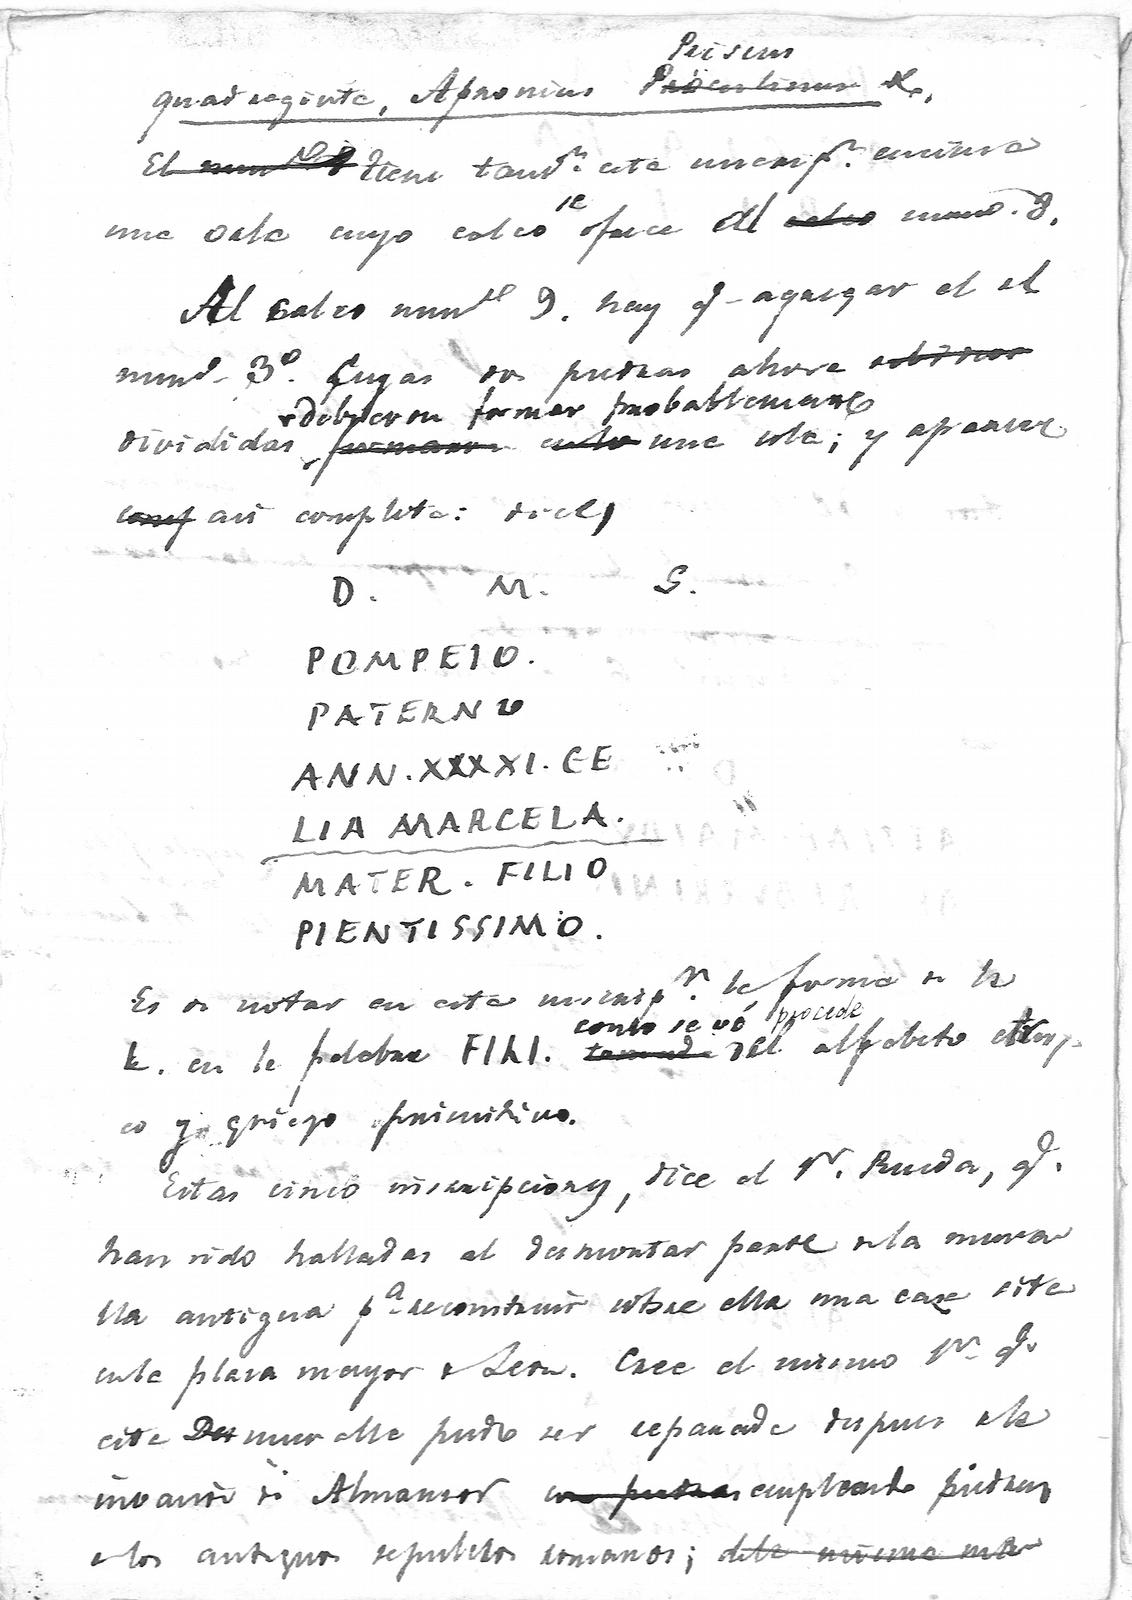 Priscus
quadraginta, Apronius Priscilinus &.
El num.º 8 tiene tamb.n esta inscrip.n encima
una orla cuyo calco se ofrece al calco num.o 8.
Al calco num.o 9. hay q.e agregar el el
num.o 3.º Cuyas dos piedras ahora
debieron formar probablemente
divididas formaron una sola; y aparece
asi completa: dice,
D. M. S.
POMPEIO.
PATERNO
ANN.XXXXI.CE
LIA MARCELA.
MATER. FILIO
PIENTISSIMO.
Es de notar en esta inscrip.n la forma de la
como se vé procede
L. en la palabra FILI. tomada del alfabeto etrus-
co y griego primitivo.
Estas cinco inscripciones, dice el Sr. Rueda, q.e
han sido halladas al desmontar parte de la mura-
lla antigua p.a reconstruir sobre ella una casa sita
en la plaza mayor de Leon. Cree el mismo Sr. q.e
esta Des muralla pudo ser reparada despues de la
invasion de Almanzor con piedras empleando piedras
de los antiguos sepulcros romanos; de la misma ma-